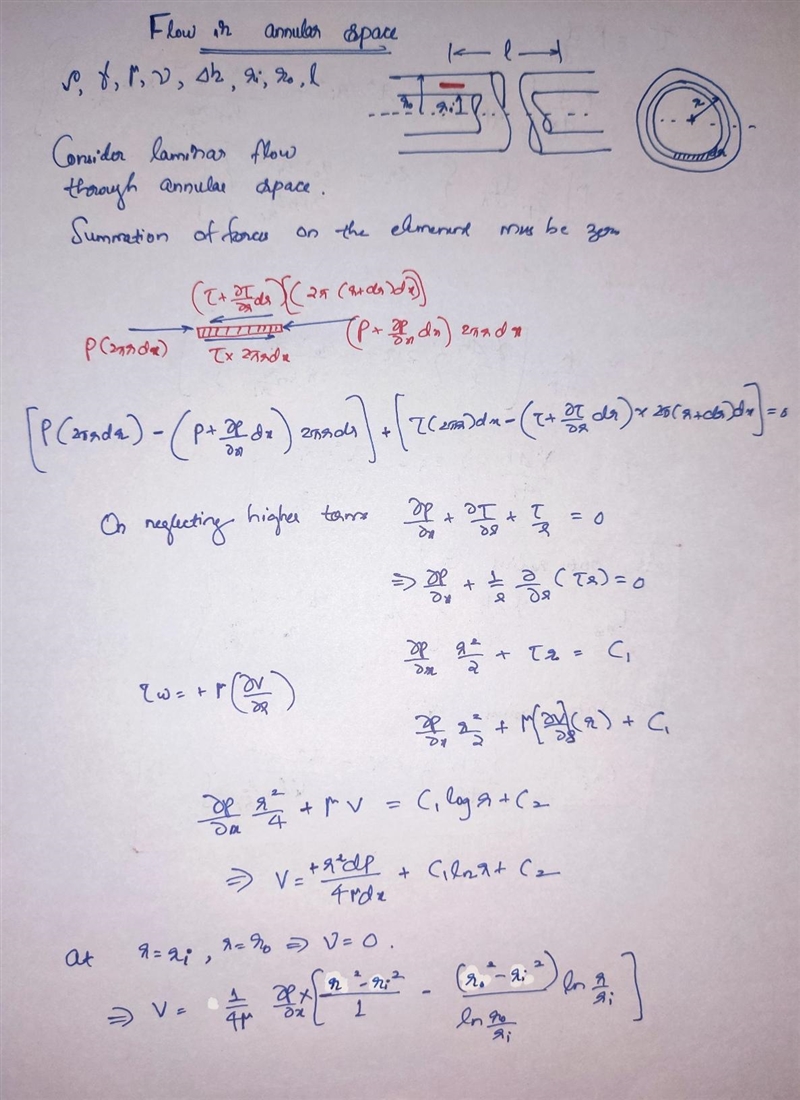 Flow in annular space
ρ, γ, μ, ν, Δh, ri, ro, l
l
ro ri
r
dr
Consider laminar flow
through annular space.
Summation of forces on the element mus be zero
(τ + ∂τ/∂r dr)(2π (r+dr)dx)
P(2πrdr)
τ × 2πrdx
(P + ∂P/∂x dx) 2πr dr
[P(2πrdr) - (P + ∂P/∂x dx) 2πrdr] + [τ(2πr)dx - (τ + ∂τ/∂r dr) × 2π(r+dr)dx] = 0
On neglecting higher terms ∂P/∂x + ∂τ/∂r + τ/r = 0
⇒ ∂P/∂x + 1/r ∂/∂r (τr) = 0
∂P/∂x r²/2 + τr = C₁
τw = + μ(∂V/∂r)
∂P/∂x r²/2 + μ[∂V/∂r](r) + C₁
∂P/∂x r²/4 + μV = C₁ log r + C₂
⇒ V = +r²dP/4μdx + C₁ ln r + C₂
At r = ri, r = ro ⇒ V = 0.
⇒ V = 1/4μ ∂P/∂x × [r² - ri²/1 - (ro² - ri²)/ln ro/ri ln r/ri]